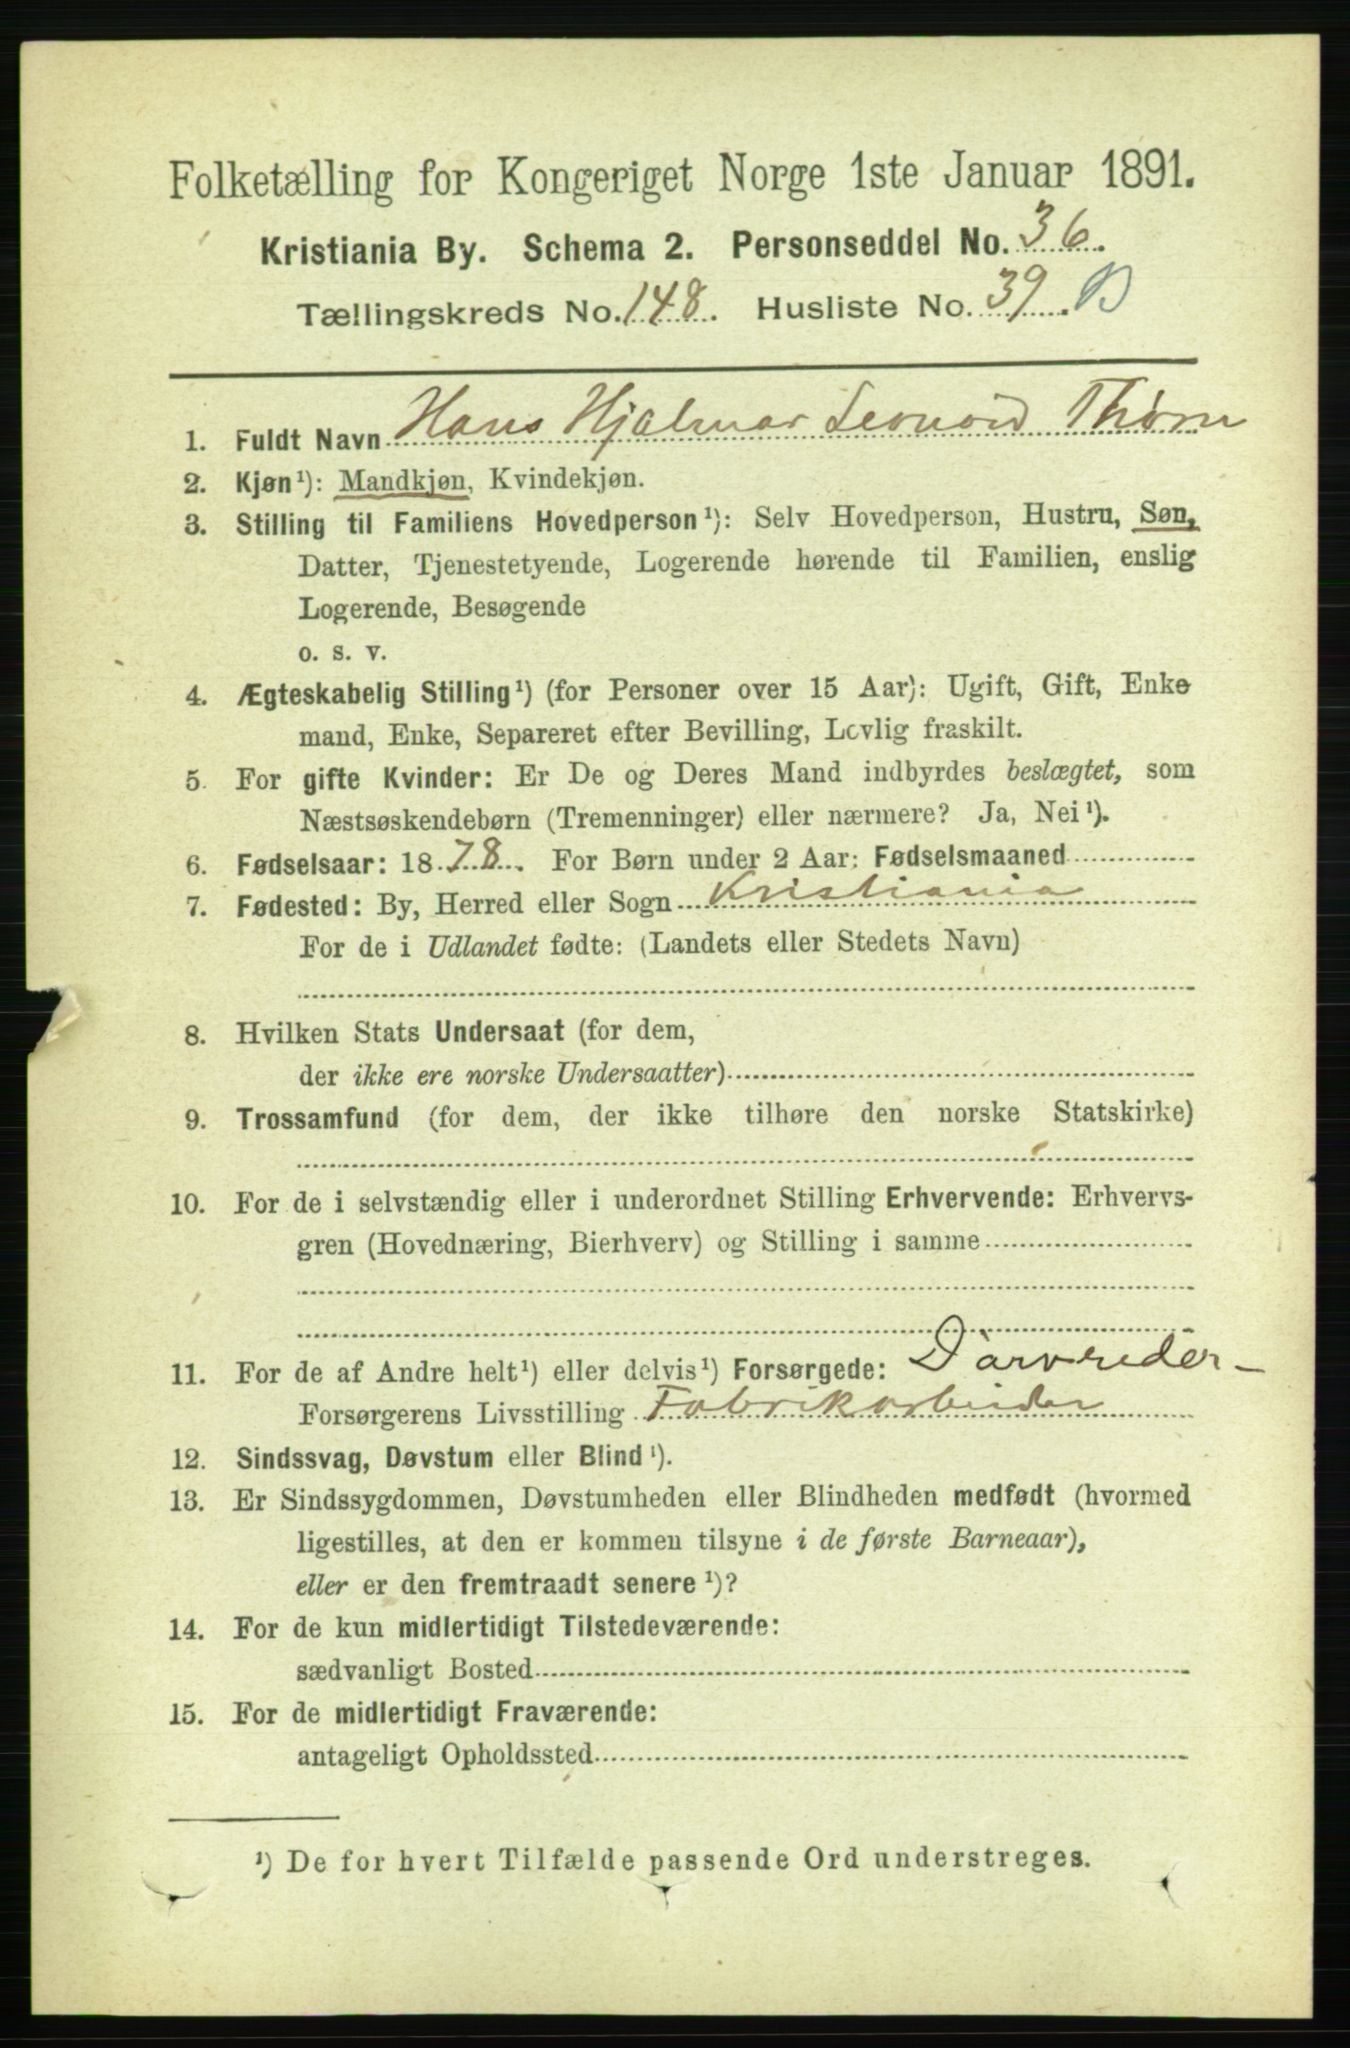 Folketælling for Kongeriget Norge 1ste Januar 1891.
Kristiania By. Schema 2. Personseddel No. 36.
Tællingskreds No. 148. Husliste No. 39. B
1. Fuldt Navn Hans Hjalmar Leonard Thørn
2. Kjøn¹): Mandkjøn, Kvindekjøn.
3. Stilling til Familiens Hovedperson¹): Selv Hovedperson, Hustru, Søn,
Datter, Tjenestetyende, Logerende hørende til Familien, enslig
Logerende, Besøgende
o. s. v.
4. Ægteskabelig Stilling¹) (for Personer over 15 Aar): Ugift, Gift, Enke
mand, Enke, Separeret efter Bevilling, Lovlig fraskilt.
5. For gifte Kvinder: Er De og Deres Mand indbyrdes beslægtet, som
Næstsøskendebørn (Tremenninger) eller nærmere? Ja, Nei¹).
6. Fødselsaar: 1878. For Børn under 2 Aar: Fødselsmaaned
7. Fødested: By, Herred eller Sogn Kristiania
For de i Udlandet fødte: (Landets eller Stedets Navn)
8. Hvilken Stats Undersaat (for dem,
der ikke ere norske Undersaatter)
9. Trossamfund (for dem, der ikke tilhøre den norske Statskirke)
10. For de i selvstændig eller i underordnet Stilling Erhvervende: Erhvervs-
gren (Hovednæring, Bierhverv) og Stilling i samme
11. For de af Andre helt¹) eller delvis¹) Forsørgede:
Forsørgerens Livsstilling Fabrikarbeider
12. Sindssvag, Døvstum eller Blind¹).
13. Er Sindssygdommen, Døvstumheden eller Blindheden medfødt (hvormed
ligestilles, at den er kommen tilsyne i de første Barneaar),
eller er den fremtraadt senere¹)?
14. For de kun midlertidigt Tilstedeværende:
sædvanligt Bosted
15. For de midlertidigt Fraværende:
antageligt Opholdssted
¹) De for hvert Tilfælde passende Ord understreges.